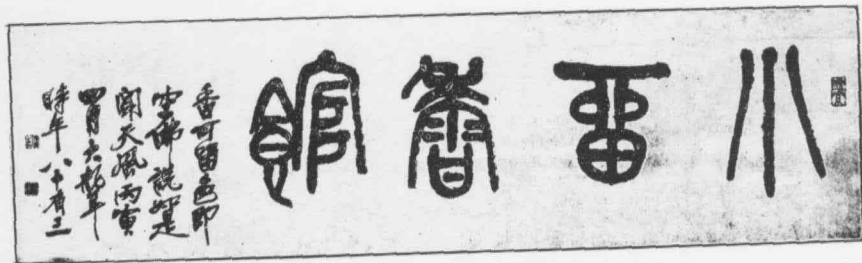 小留香館
香可留色即
空佛說如是
聞天風丙寅
四月大聾
時年八十有三